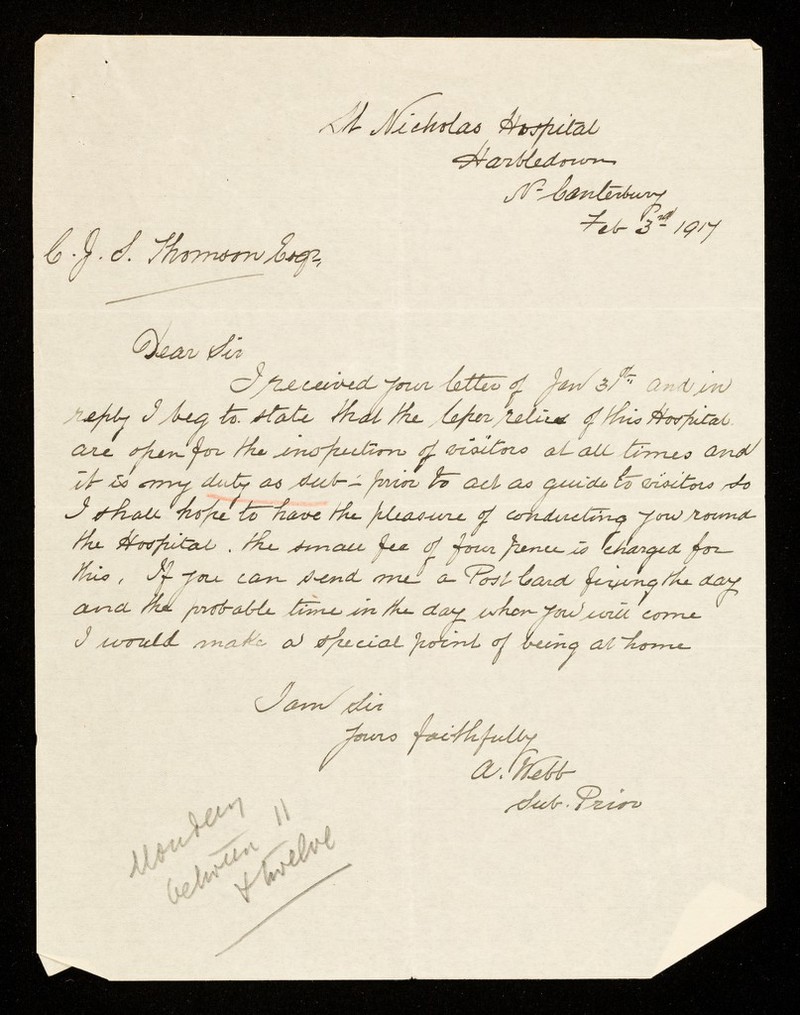 St Nicholas Hospital
Harbledown
Nr Canterbury
Feb 3rd 1917
C. J. S. Thomson Esqr,
Dear Sir
I received your letter of Jan 31st and in
reply I beg to state that the leper relics of this Hospital
are open for the inspection of visitors at all times and
it is my duty as sub-prior to act as guide to visitors so
I shall hope to have the pleasure of conducting you round
the Hospital. the small fee of four pence is charged for
this. If you can send me a Post Card fixing the day
and the probable time in the day when you will come
I would make a special point of being at home
I am Sir
Yours faithfully
A. Webb
Sub. Prior
Monday
between 11
& twelve